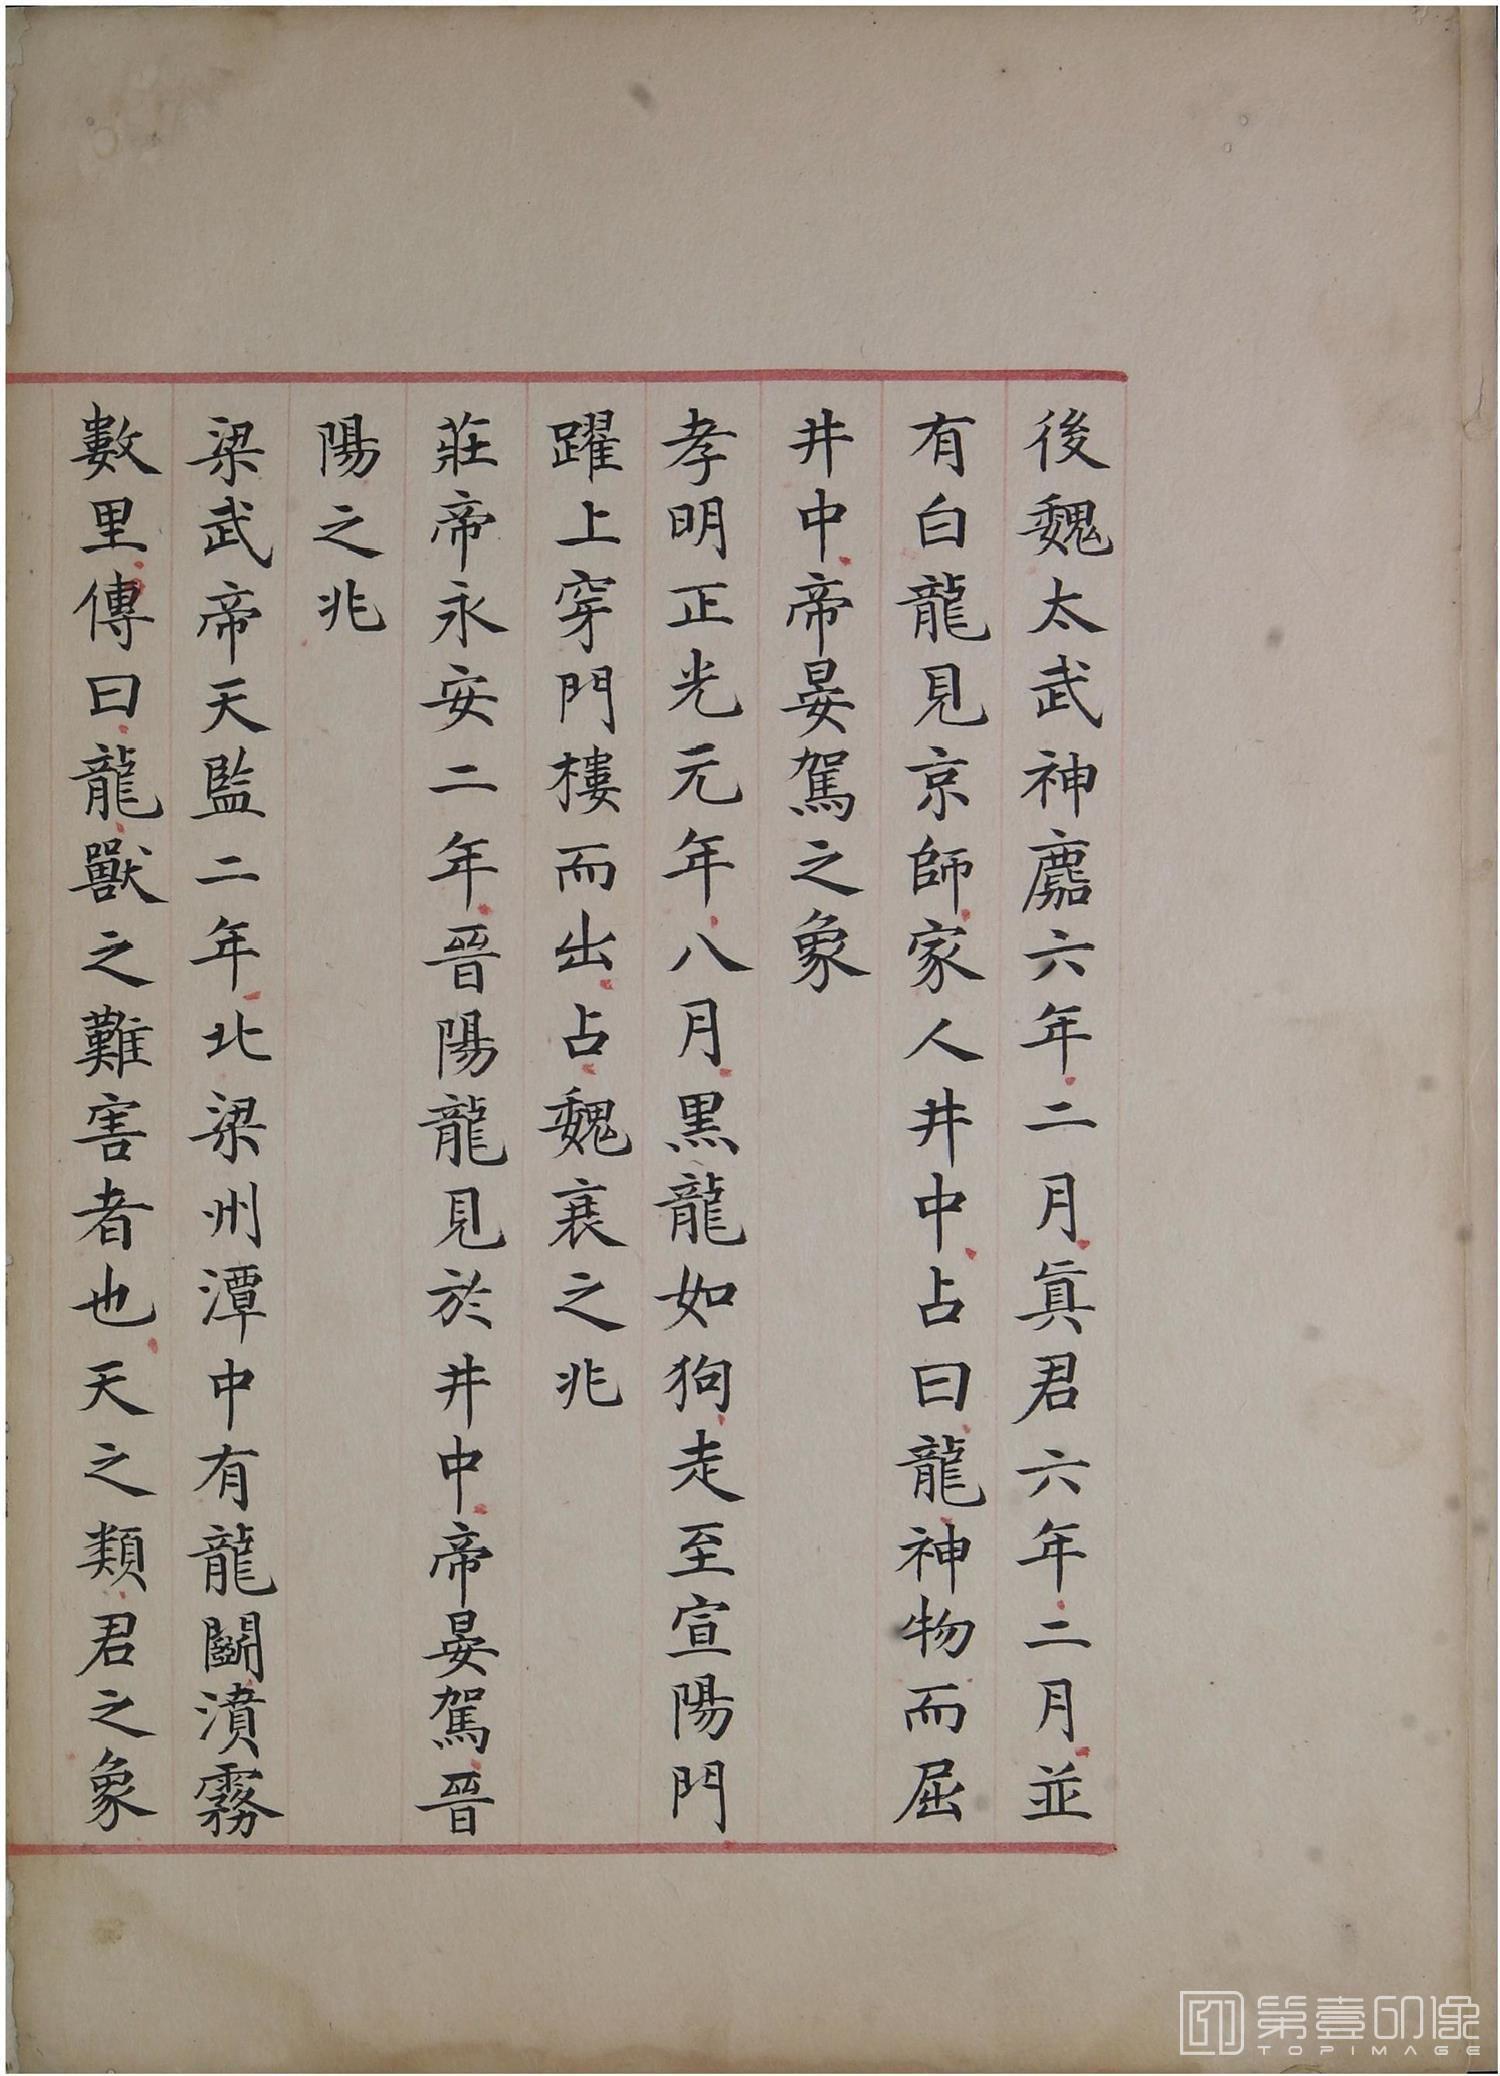 後魏太武神䴥六年二月眞君六年二月並
有白龍見京師家人井中占曰龍神物而屈
井中帝晏駕之象
孝明正光元年八月黑龍如狗走至宣陽門
躍上穿門樓而出占魏衰之兆
莊帝永安二年晉陽龍見於井中帝晏駕晉
陽之兆
梁武帝天監二年北梁州潭中有龍鬭濆霧
數里傳曰龍獸之難害者也天之類君之象
第壹印像
TOPIMAGE